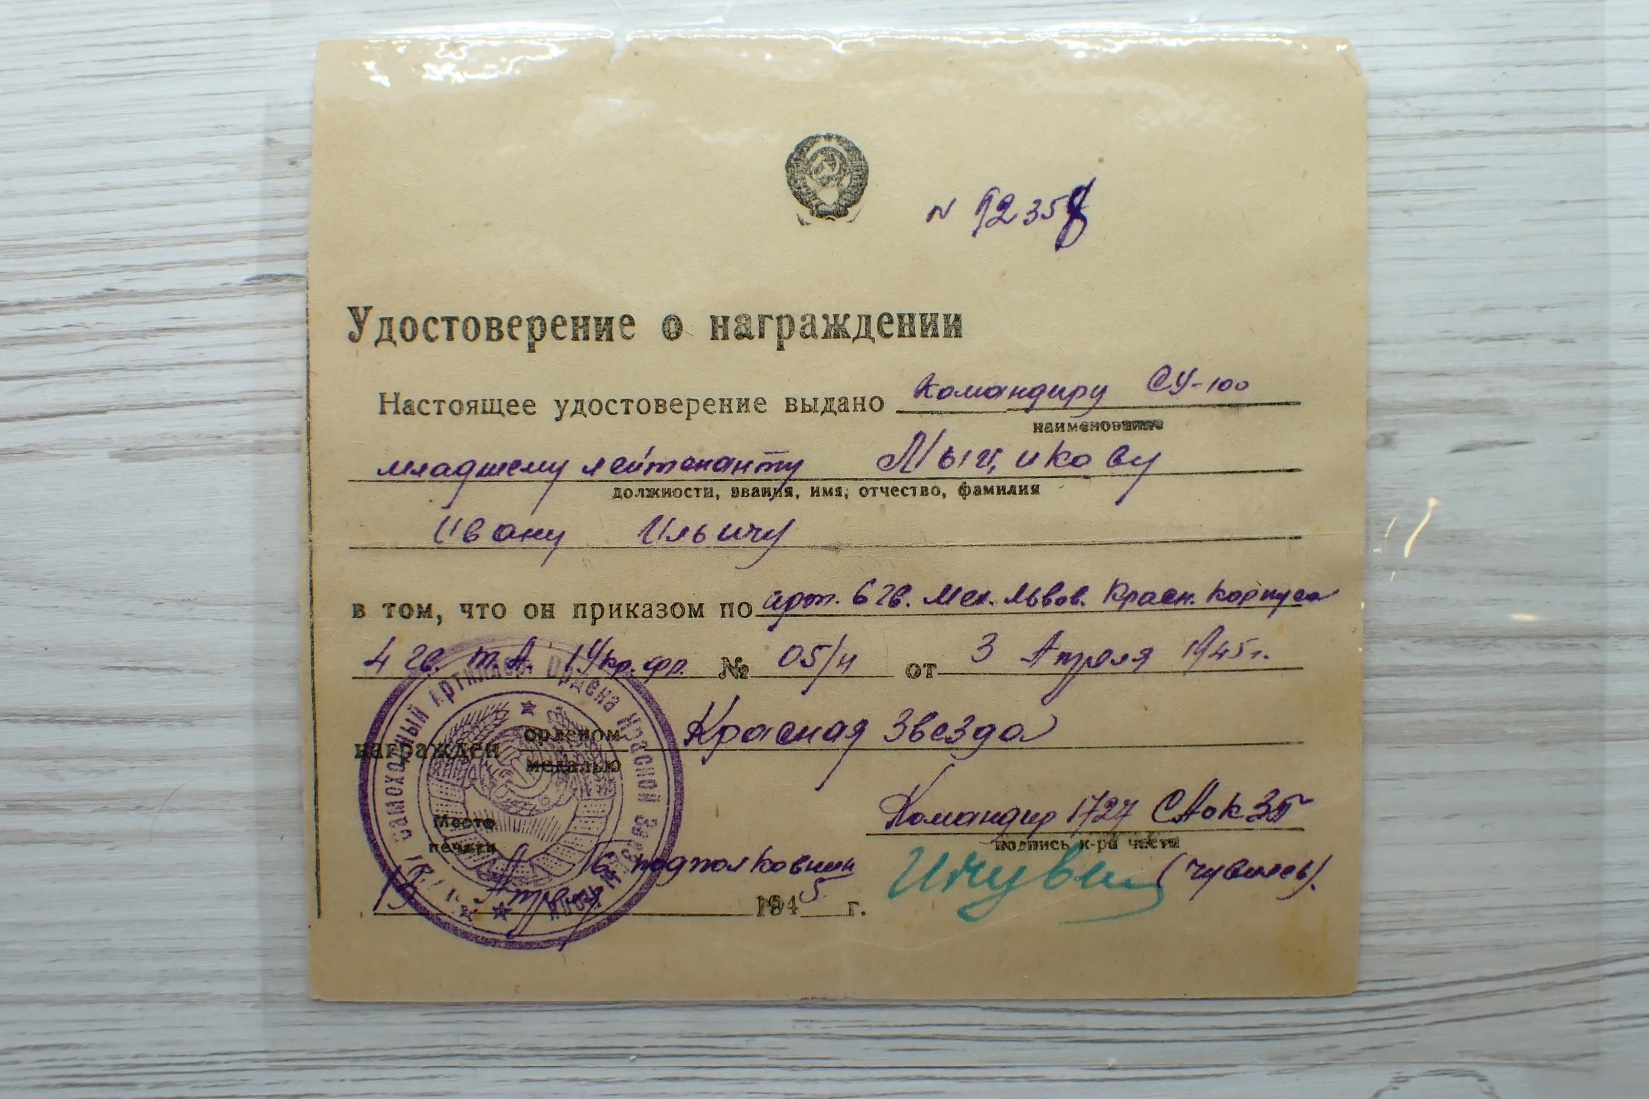 N 92358
Удостоверение о награждении
Настоящее удостоверение выдано Командиру СУ-100
наименование
младшему лейтенанту Мыцикову
должности, звания, имя, отчество, фамилия
Ивану Ильичу
в том, что он приказом по арт. 6 гв. Мех. Львов. Красн. Корпуса
4 гв. Т.А. 1 Укр. фр. № 05/н от 3 Апреля 1945г.
награжден орденом Красная Звезда
медалью
Командир 1727 САпКЗП
Место
печати
подпись к-ра части
Гв. подполковник (Чувилев).
15 Апреля 1945 г.
Самоходный Артиллер Ордена Красной Звезды полк